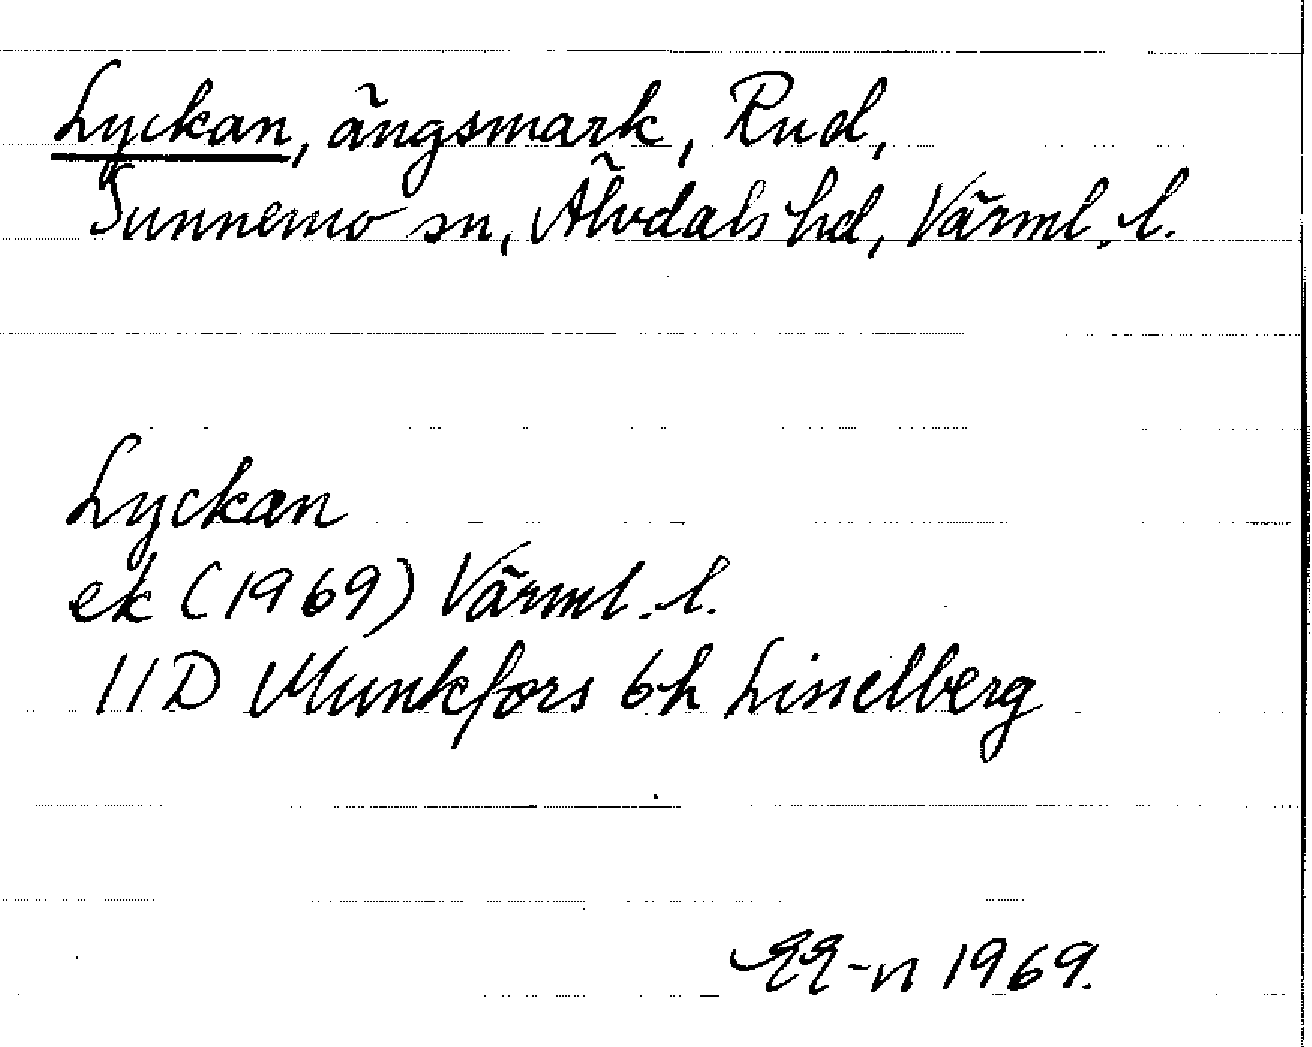 Lyckan, ängsmark, Rud,
Sunnemo sn, Älvdals hd, Värml. l.
Lyckan
ek (1969) Värml. l.
11D Munkfors 6h Lisselberg
EE-n 1969.